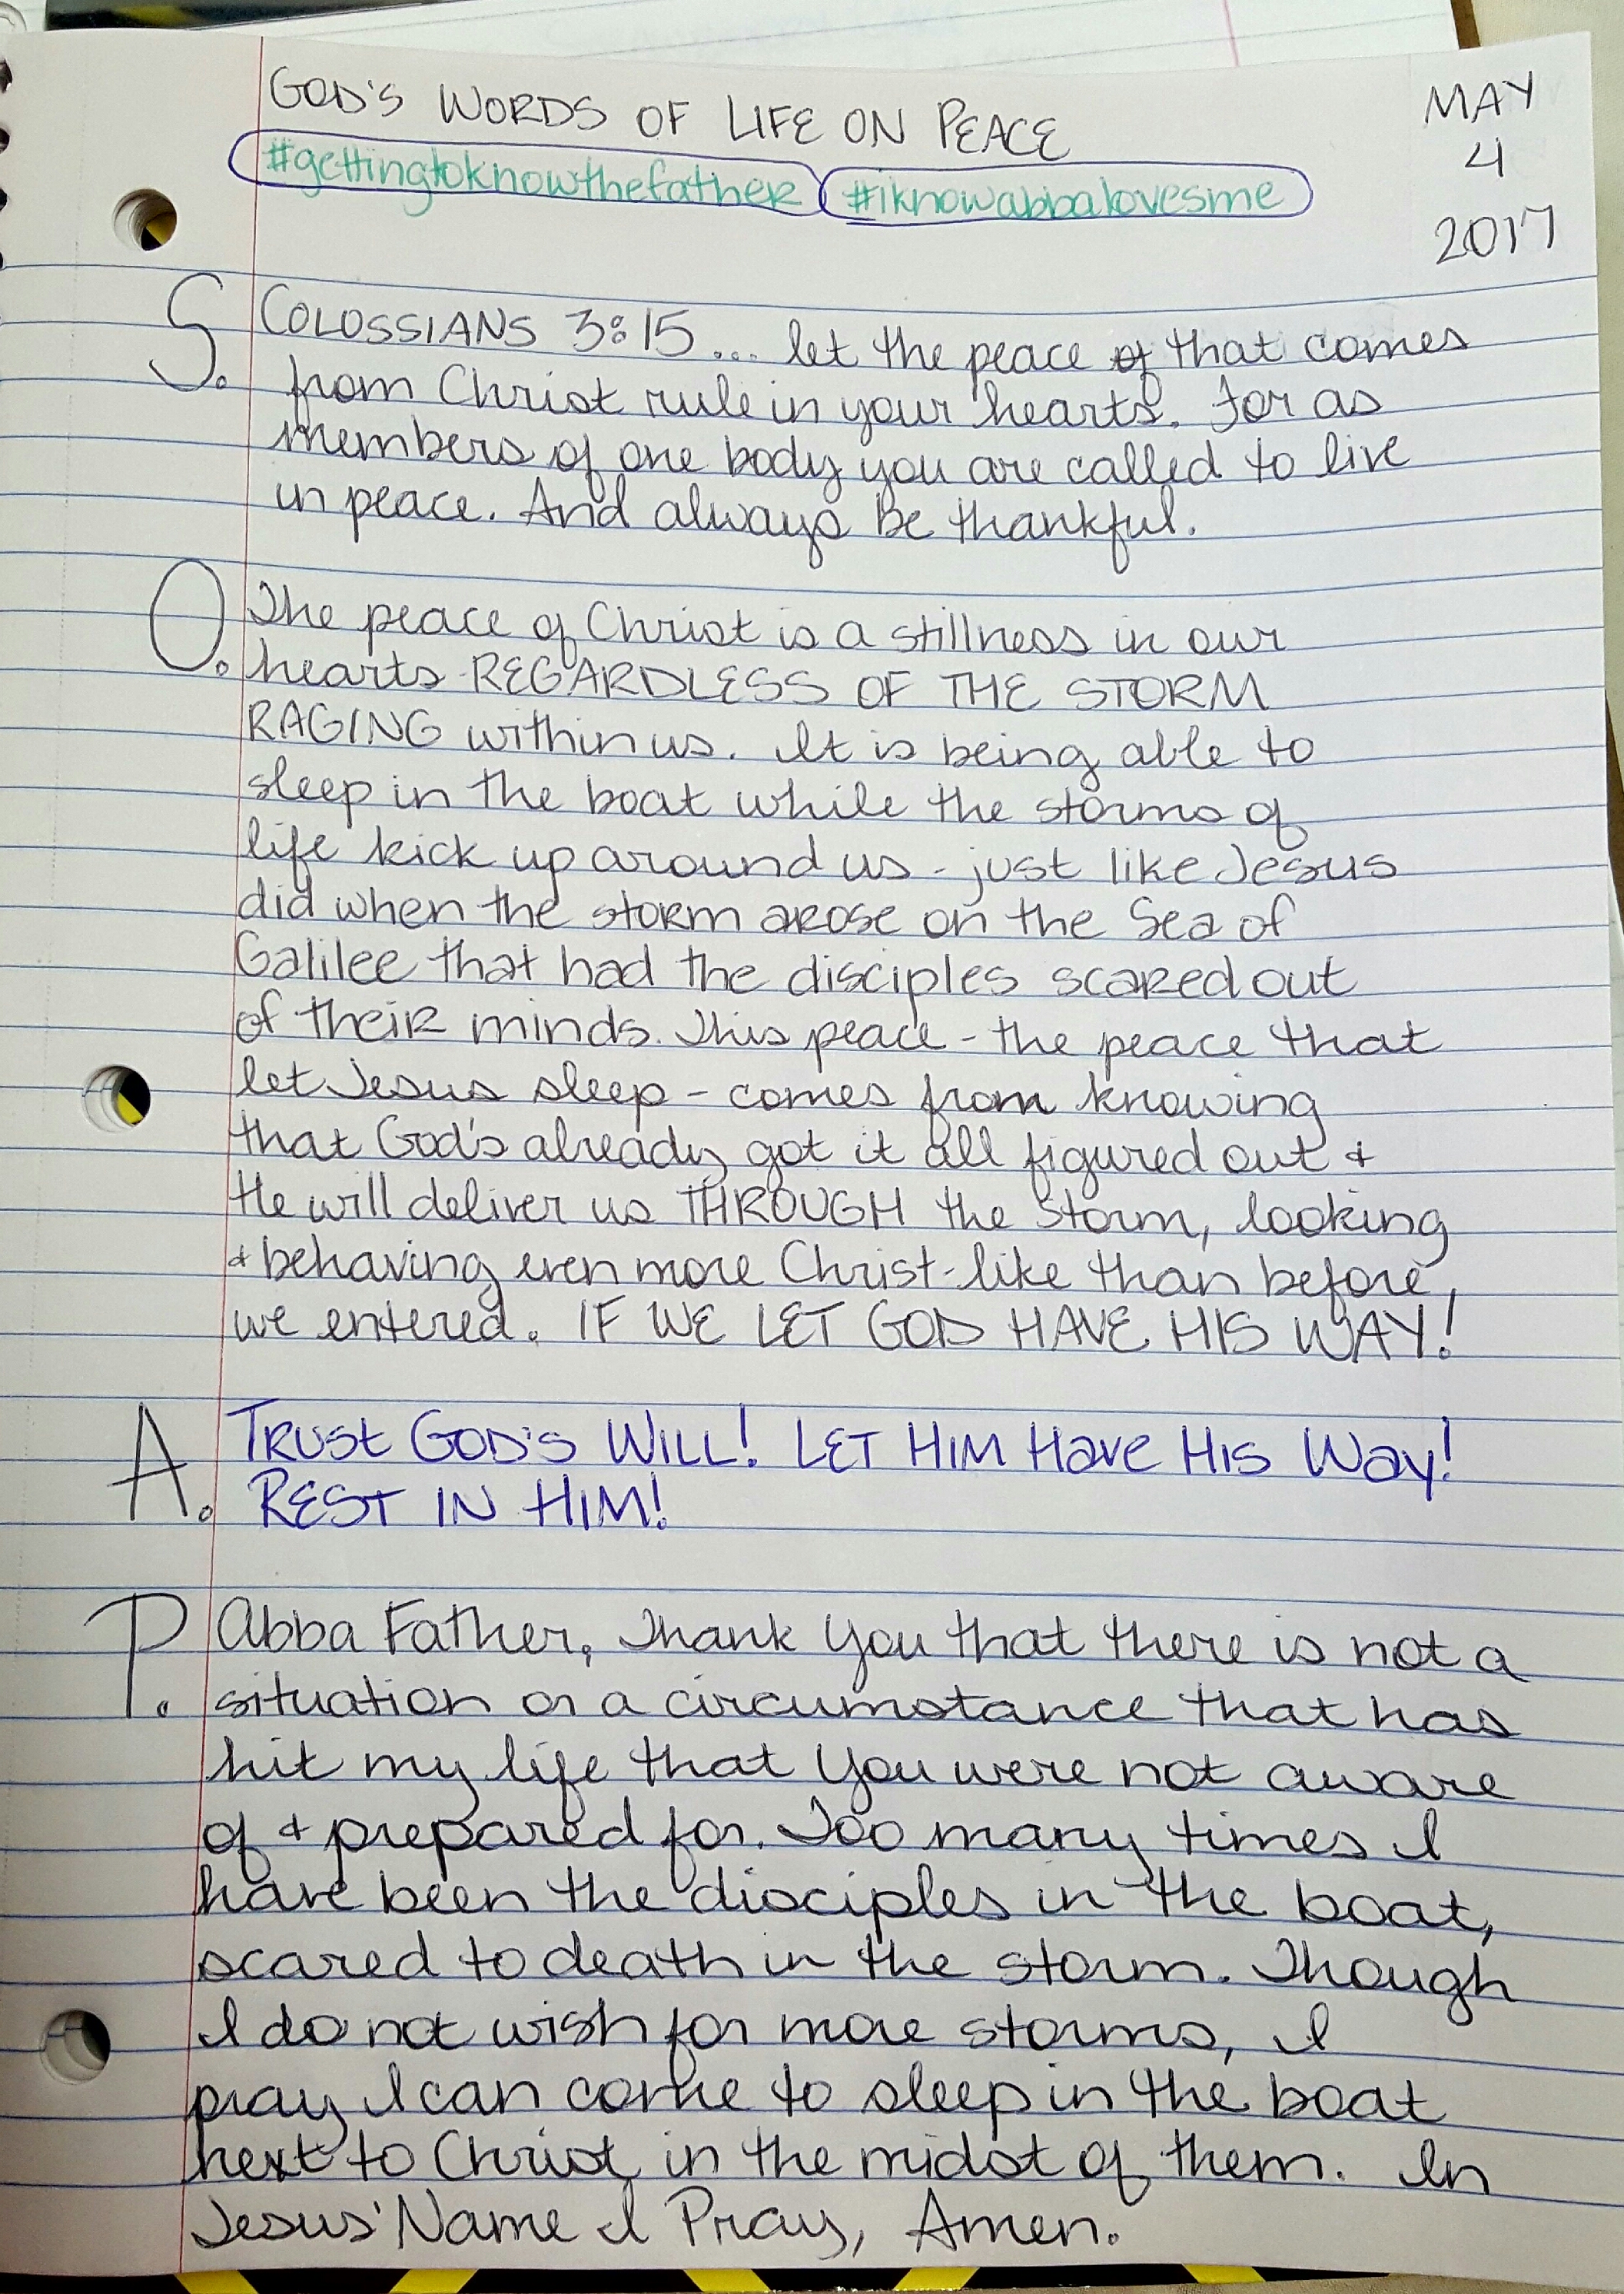 GOD'S WORDS OF LIFE ON PEACE
#gettingtoknowthefather #iknowabbalovesme
MAY
4
2017
S. COLOSSIANS 3:15 ... let the peace of that comes
from Christ rule in your hearts. For as
members of one body you are called to live
in peace. And always be thankful.
O. The peace of Christ is a stillness in our
hearts REGARDLESS OF THE STORM
RAGING within us. It is being able to
sleep in the boat while the storms of
life kick up around us - just like Jesus
did when the storm arose on the Sea of
Galilee that had the disciples scared out
of their minds. This peace - the peace that
let Jesus sleep - comes from knowing
that God's already got it all figured out &
He will deliver us THROUGH the storm, looking
& behaving even more Christ-like than before
we entered. IF WE LET GOD HAVE HIS WAY!
A. TRUST GOD'S WILL! LET HIM Have HIS Way!
REST IN HIM!
P. Abba Father, Thank You that there is not a
situation or a circumstance that has
hit my life that You were not aware
of & prepared for. Too many times I
have been the disciples in the boat,
scared to death in the storm. Though
I do not wish for more storms, I
pray I can come to sleep in the boat
next to Christ in the midst of them. In
Jesus' Name I Pray, Amen.